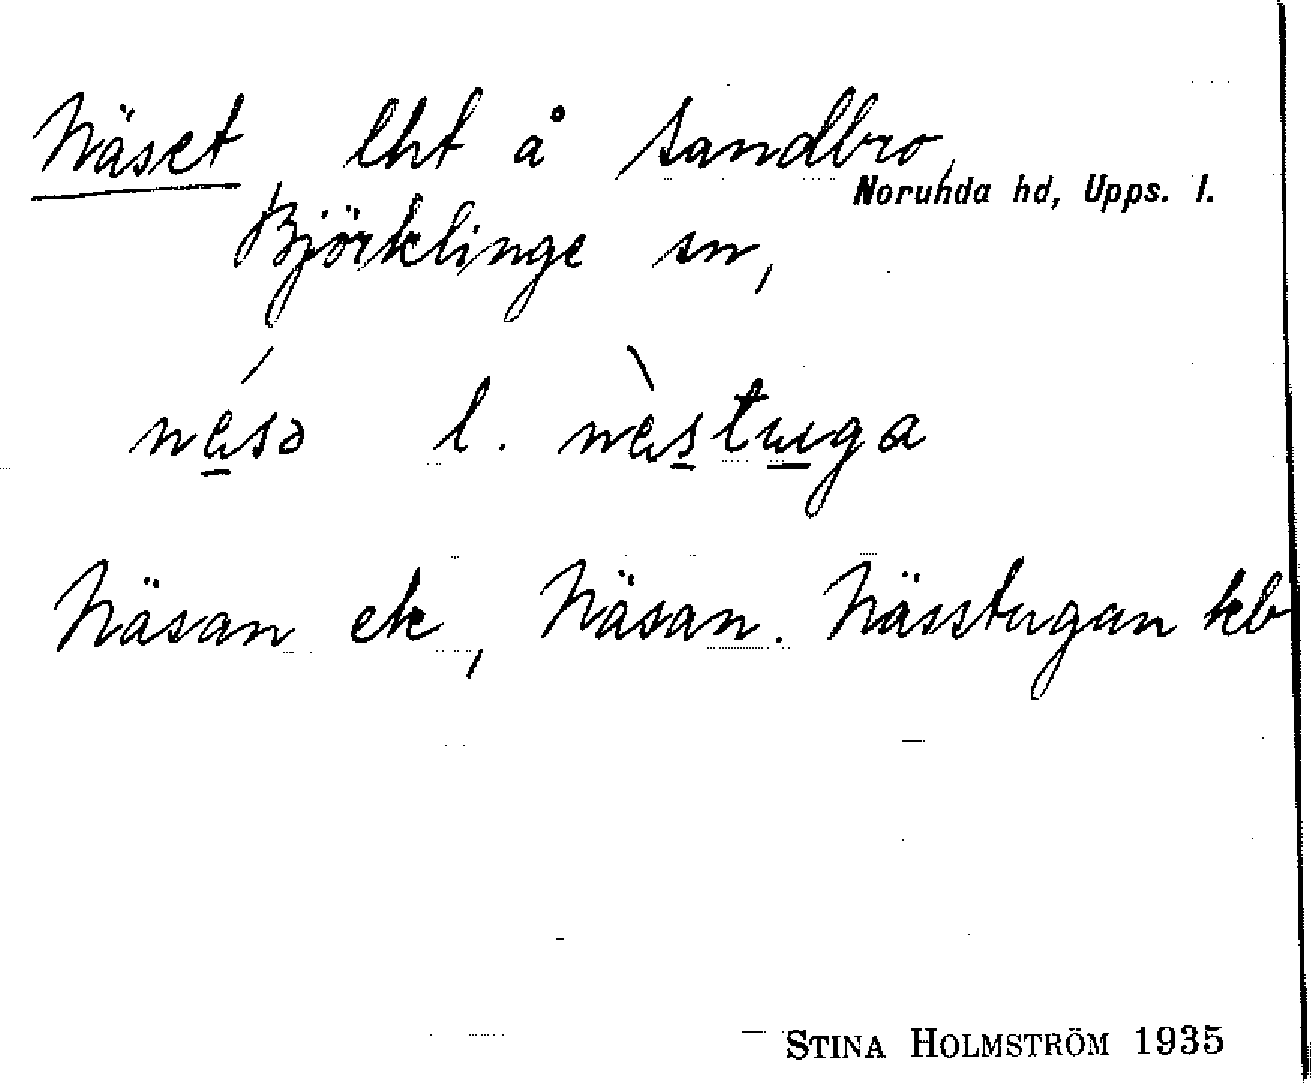 Näset, lht å Sandbro,
Norunda hd, Upps. l.
Björklinge sn,
nésə l. nèstuga
Näsan ek, Näsan. Nässtugan kb
STINA HOLMSTRÖM 1935